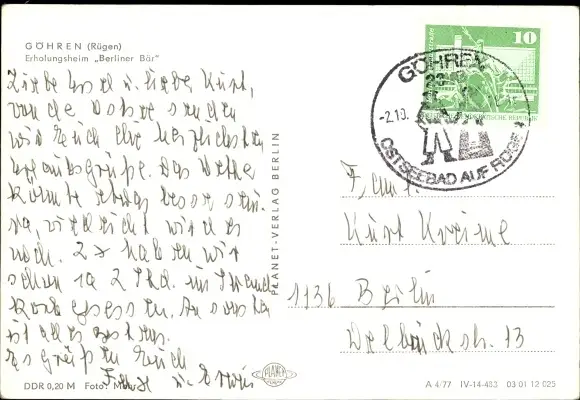 GÖHREN (Rügen)
Erholungsheim „Berliner Bär"
Liebe u. lieber Kurt,
von der Ostsee senden
wir Euch die herzlichsten
Urlaubsgrüße. Das Wetter
könnte etwas besser sein.
Na, vielleicht wird es
noch. 2x haben wir
schon ca 2 Std. im Strand
korb gesessen. Ansonsten
ist alles gestens.
Es grüßen Euch
u. Erwin
DDR 0,20 M Foto:
PLANET-VERLAG BERLIN
PLANET
10
DEUTSCHE DEMOKRATISCHE REPUBLIK
GÖHREN
-2.10.
OSTSEEBAD AUF RÜGEN
Fam.
Kurt Kreime
1136 Berlin
Delbrückstr. 13
A 4/77 IV-14-483 03 01 12 025